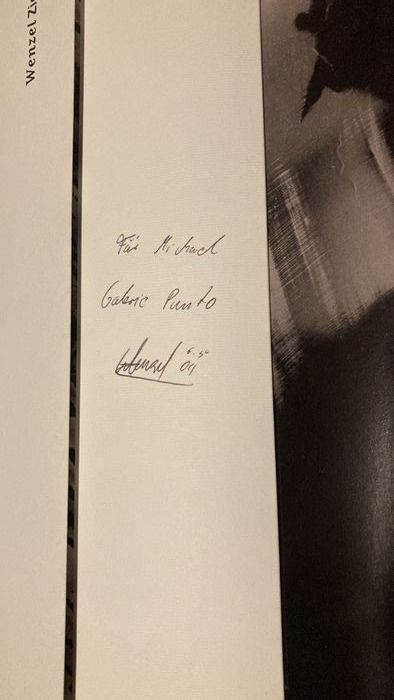 Wenzel
Für Michael
Galerie Punto
Wenzel 09